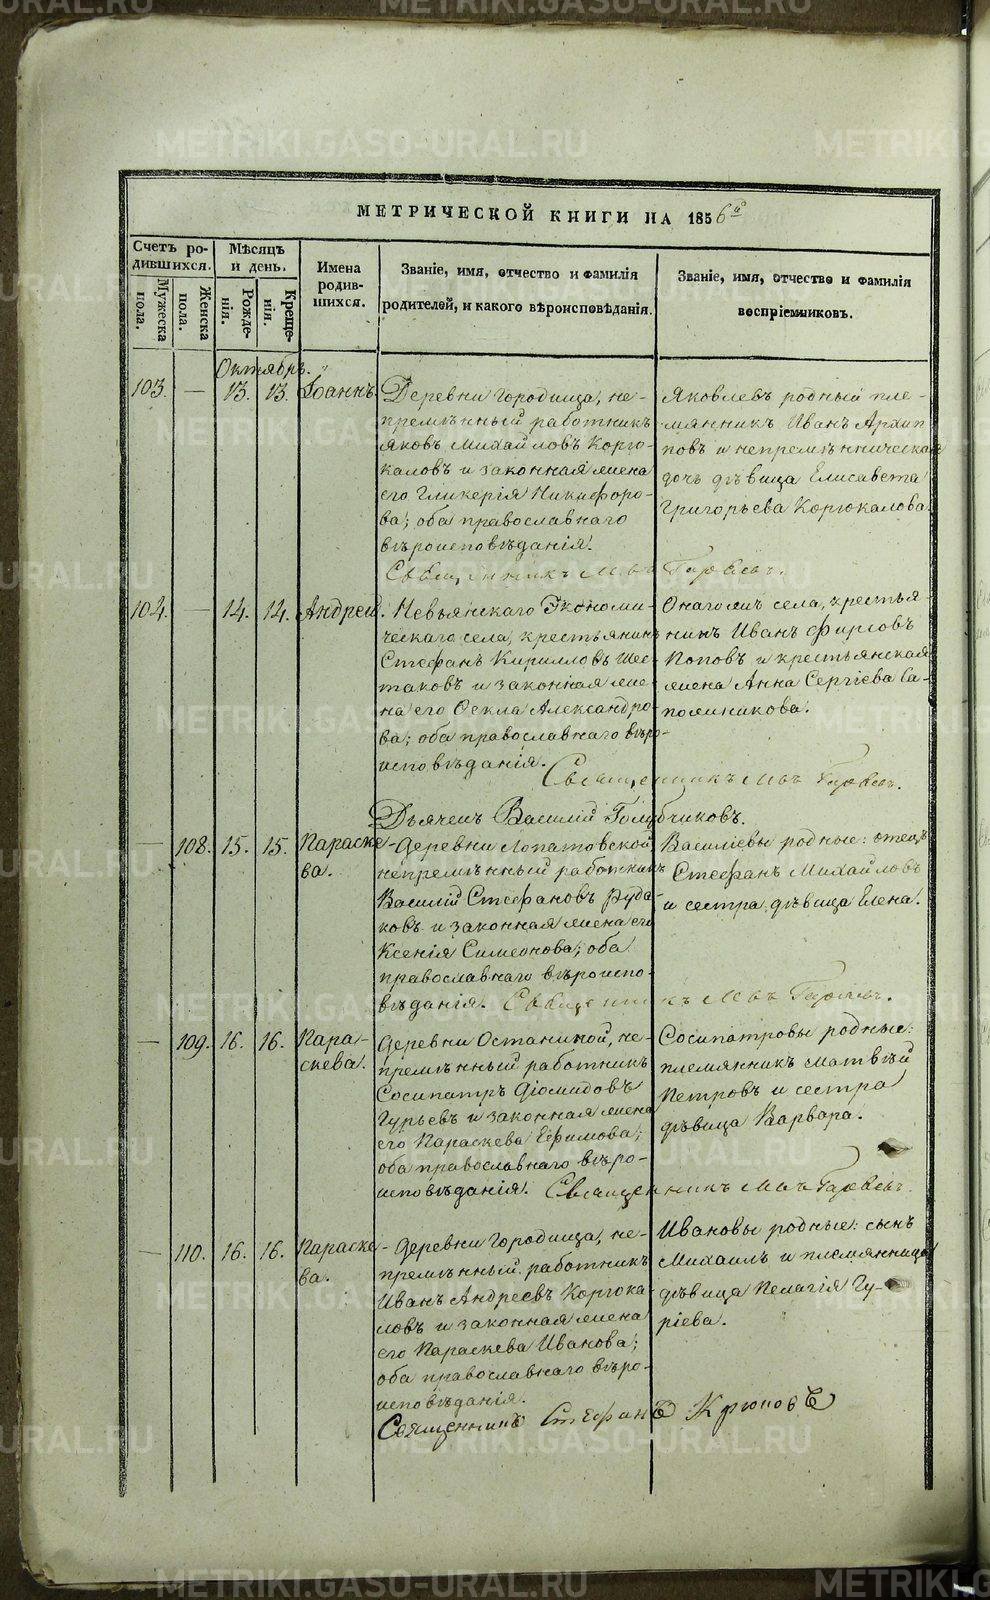 МЕТРИЧЕСКОЙ КНИГИ НА 1856й
Счетъ ро-
дившихся.
Мужеска
пола.
Женска
пола.
Мѣсяцъ
и день.
Рожде-
нія.
Креще-
нія.
Имена
родив-
шихся.
Званіе, имя, отчество и фамилія
родителей, и какого вѣроисповѣданія.
Званіе, имя, отчество и фамилія
воспріемниковъ.
Октябрь.
103. — 13. 13. Іоаннъ.
Деревни Городища, не-
премѣнный работникъ
Яковъ Михайловъ Корю-
каловъ и законная жена
его Гликерія Никифоро-
ва; оба православнаго
вѣроисповѣданія.
Яковлевъ родный пле-
мянникъ Иванъ Архип-
повъ и непремѣнническая
дочь дѣвица Елисавета
Григорьева Корюкалова.
Священникъ
104. — 14. 14. Андрей.
Невьянскаго Экономи-
ческаго села, крестьянинъ
Стефанъ Кирилловъ Шес-
таковъ и законная же-
на его Ѳекла Александро-
ва; оба православнаго вѣро-
исповѣданія.
Онагожъ села, крестья-
нинъ Иванъ Фирсовъ
Поповъ и крестьянская
жена Анна Сергіева Са-
пожникова.
Священникъ
Дьячекъ Василій Голубчиковъ.
— 108. 15. 15. Параске-
ва.
Деревни Лопатовской
непремѣнный работникъ
Василій Стефановъ Руда-
ковъ и законная жена его
Ксенія Симеонова; оба
православнаго вѣроиспо-
вѣданія.
Василіевы родные: отецъ
Стефанъ Михайловъ
и сестра дѣвица Елена.
Священникъ
— 109. 16. 16. Пара-
скева.
Деревни Останиной, не-
премѣнный работникъ
Сосипатръ Діомидовъ
Гурьевъ и законная жена
его Параскева Ефимова;
оба православнаго вѣро-
исповѣданія.
Сосипатровы родные:
племянникъ Матвѣй
Петровъ и сестра
дѣвица Варвара.
Священникъ
— 110. 16. 16. Параске-
ва.
Деревни Городища, не-
премѣнный работникъ
Иванъ Андреевъ Корюка-
ловъ и законная жена
его Параскева Иванова;
оба православнаго вѣро-
исповѣданія.
Ивановы родные: сынъ
Михаилъ и племянница
дѣвица Пелагія Гу-
ріева.
Священникъ Стефанъ Крюковъ
METRIKI.GASO-URAL.RU